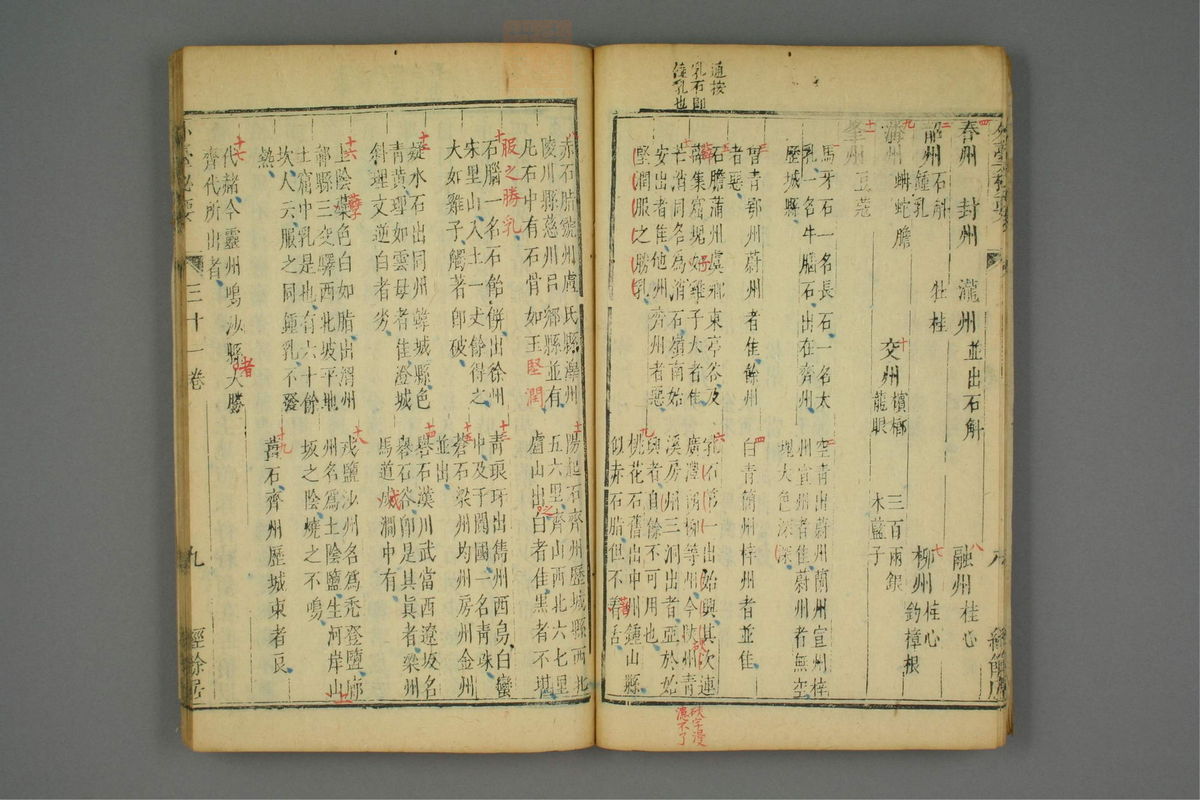 通按
乳石即
鍾乳也
四
春州 封州 瀧州並出石斛
八
融州桂心
二
韶州石斛
鍾乳
牡桂
七
柳州桂心
釣樟根
九
蚺蛇膽
十
交州檳榔
龍眼
三百兩銀
木藍子
十一
豆蔻
一
馬牙石一名長石一名太
乳一名牛腦石出在齊州
歷城縣
二
空青出蔚州蘭州宣州梓
州宣州者佳蔚州者無空
埋大色深
三
曾青鄂州蔚州者佳餘州
者惡
四
白青簡州梓州者並佳
五
石膽蒲州虞鄉東亭谷及
薛集窟塊如雞子大者佳
芒消同名為消石嶺南始
安出者佳他州齊州者惡
堅潤服之勝乳
六
乳石第一出始興其次連
溪房州三洞出者亞於始
興者自餘不可用也
九
桃花石舊出申州鍾山縣
似赤石脂但不着舌
砍字漫
漶不了
赤石脂虢州盧氏縣澤州
陵川縣慈州呂鄉縣並有
凡石中有石骨如玉堅潤
服之勝乳
十
石腦一名石飴餅出徐州
宋里山入土一丈餘得之
大如雞子觸著即破
十一
陽起石齊州歷城縣西北
五六里齊山西北六七里
盧山出之白者佳黑者不堪
十二
凝水石出同州韓城縣色
青黃理如雲母者佳澄城
斜理文逆白者劣
十三
青琅玕出雋州西烏白蠻
中及于闐國一名青珠
十五
蒼石梁州均州房州金州
並出
十四
礜石漢川武當西遼坂名
礜石谷即是其真者梁州
馬道戍澗中有
十六
土陰孽色白如脂出渭州
鄣縣三交驛西北坡平地
土窟中乳是也有六十餘
坎人云服之同鍾乳不發
熱
十八
戎鹽沙州名為禿登鹽廓
州名為土陰鹽生河岸山
坂之陰燒之不鳴
十七
代赭今靈州鳴沙縣者大勝
齊代所出者
十九
石齊州歷城東者良
三十一卷
九
經餘居